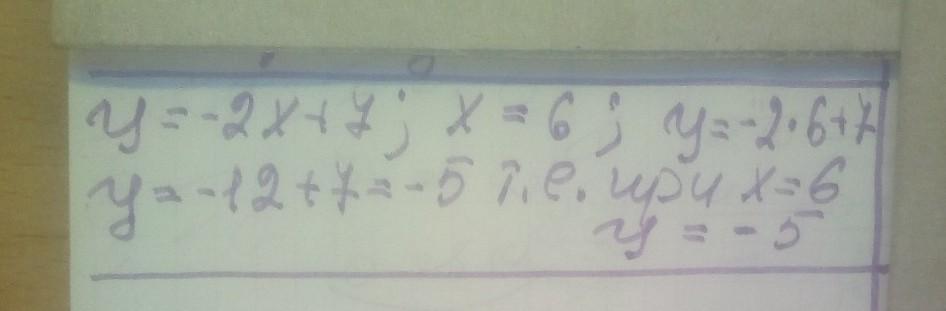 y = -2x + 7; x = 6; y = -2·6+7
y = -12+7 = -5 т.е. при x = 6
y = -5